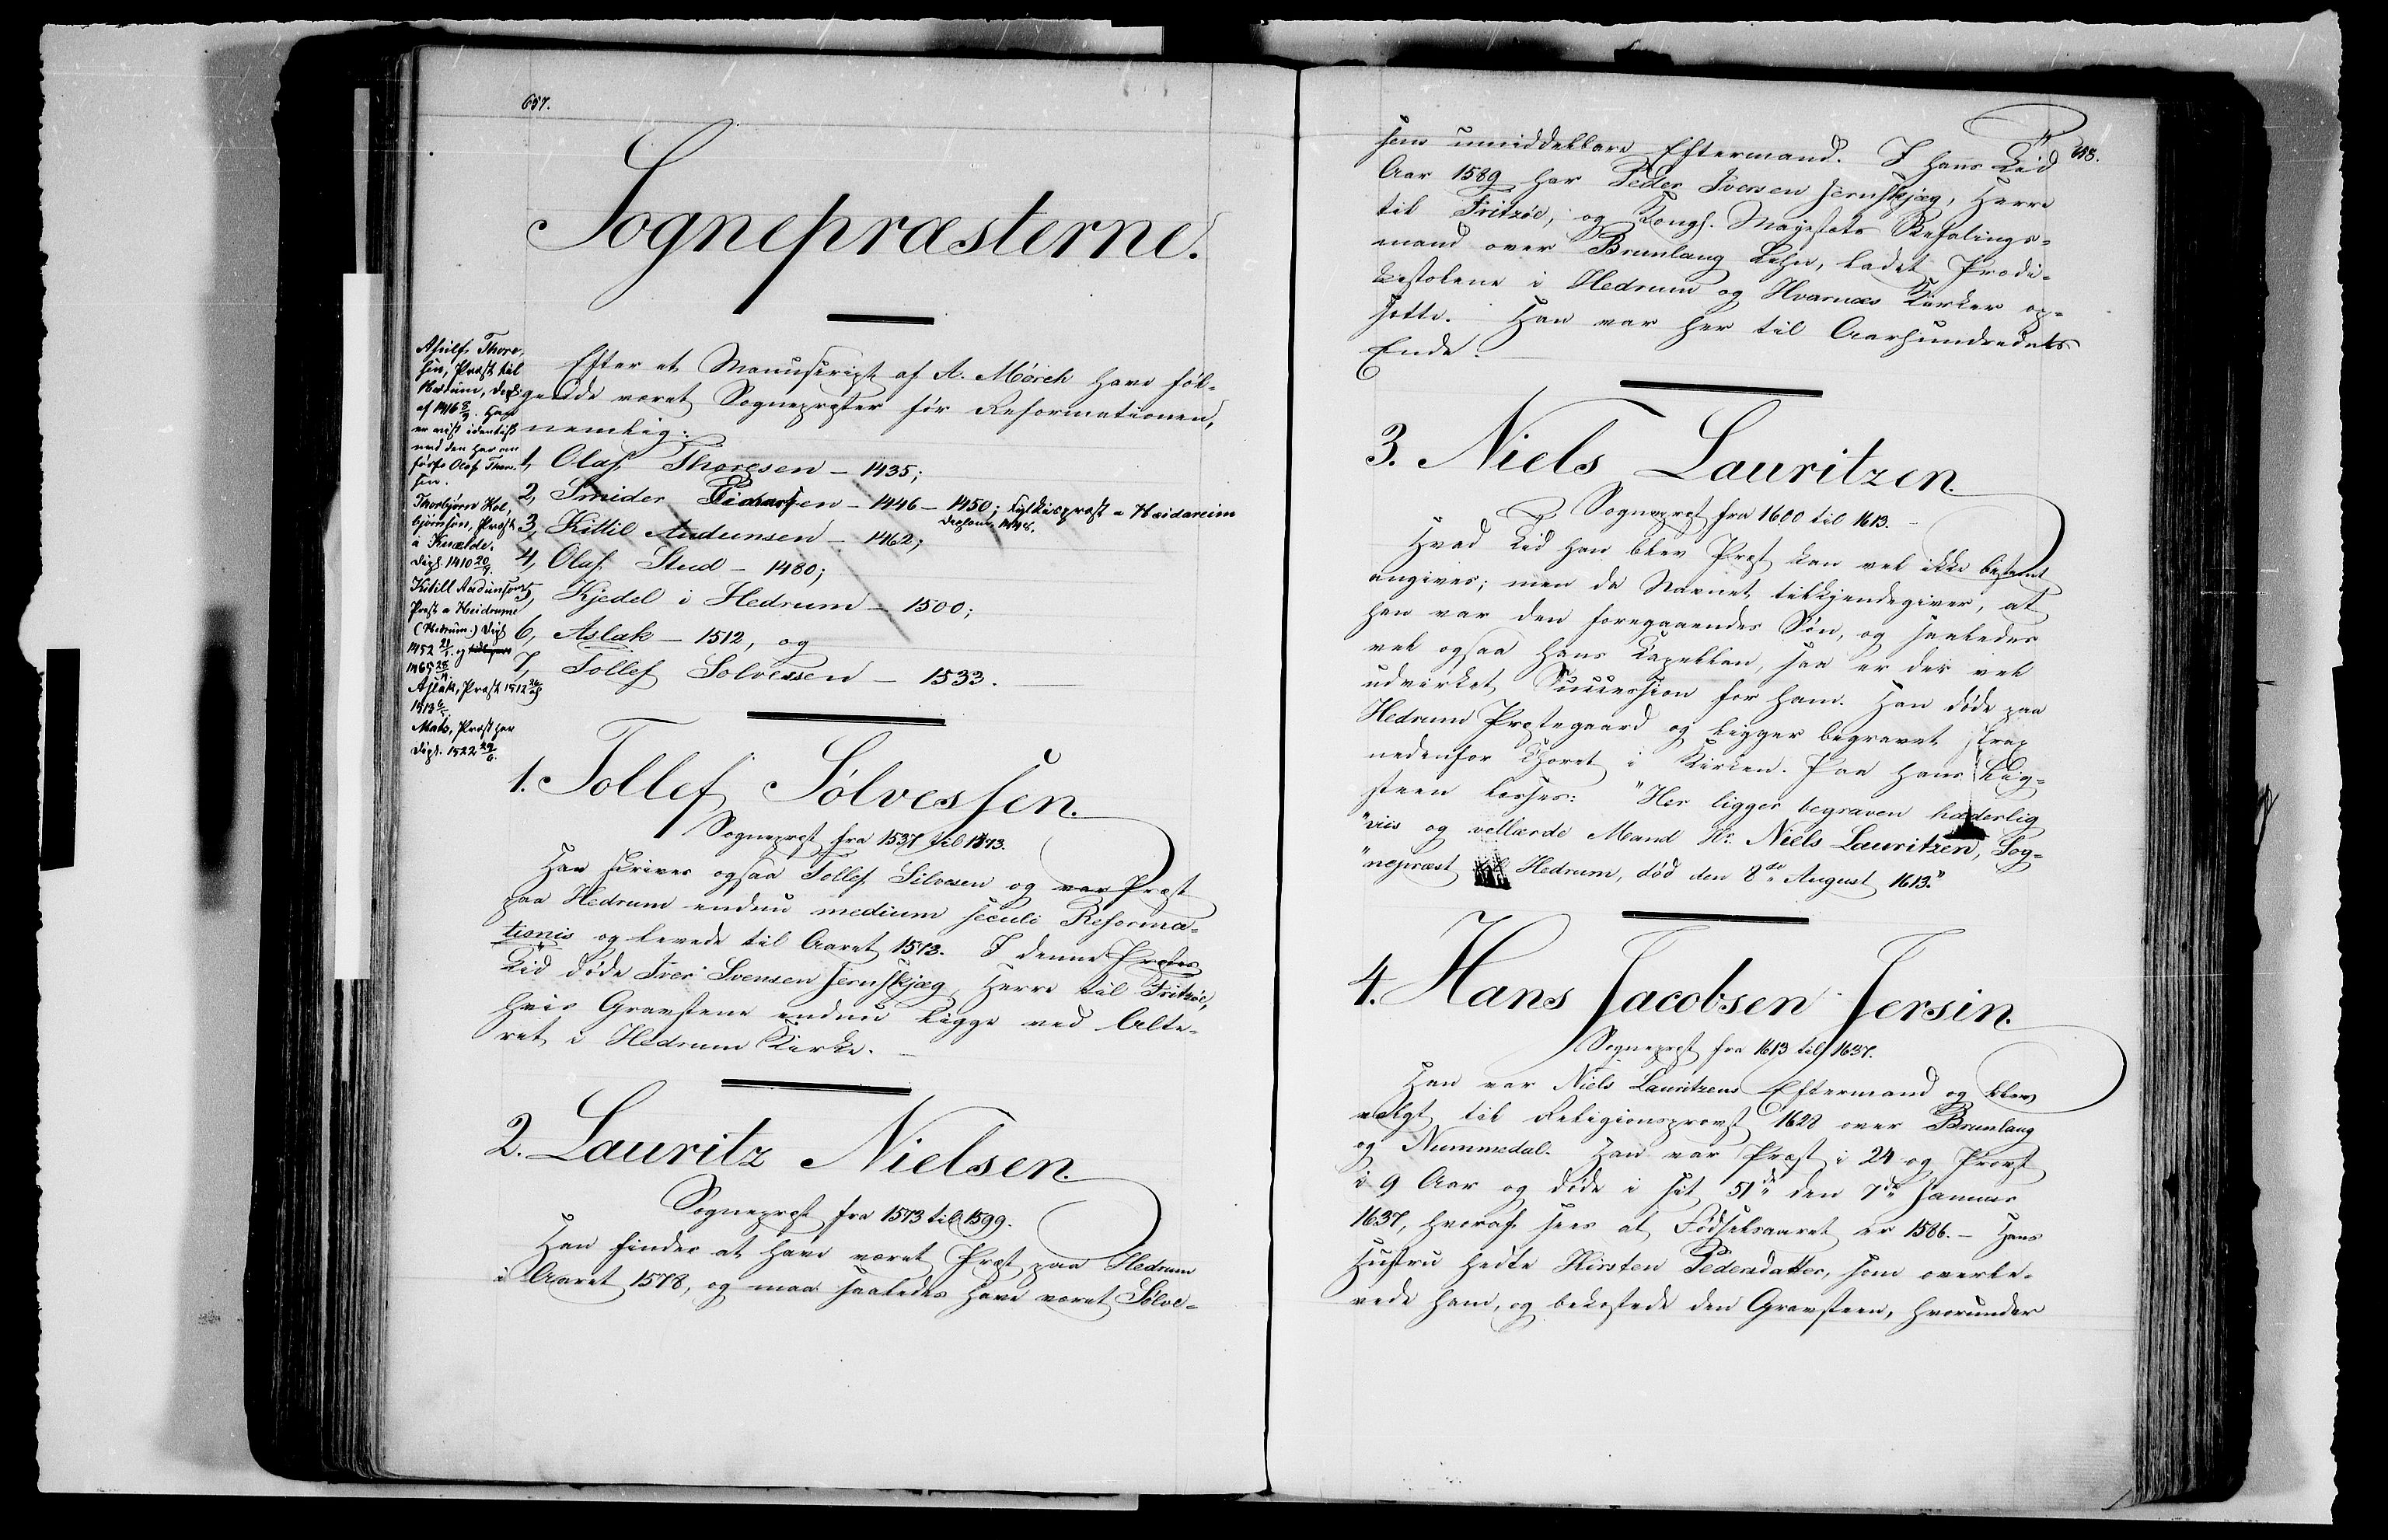 657.
Sognepræsterne.
Asulf Thore,
sön, Præst til
af 1416 8/9. Han
er vist identisk
med den her an
förte Olaf Thore
sen.
Thorbjørn Kol,
bjørnsön, Præst
a Kvælde.
Dipl. 1410 20/9.
Ketill Audunsson
Præst a Heidrume
(Hedrum.) Dipl
1452 21/1. og
1465 28/4
Aslak, Præst 1512 26/
1513 6/1.
Mats, Præst her
Dipl. 1522 29/6.
Efter et Manuscript af A. Mörch have föl-
gende været Sognepræster för Reformationen,
nemlig:
1, Olaf Thoresen – 1435;
2, Smider – 1446 – 1450; Fylkisprest a Heidareim
Diplom 1448.
3, Kittil Audunsen – 1462;
4, Olaf Stud – 1480;
5, Kjedel i Hedrum – 1500;
6, Aslak – 1512, og
7, Tollef Solvessen – 1533.
1. Tollef Sølvessen.
Sognepræst fra 1537 til 1573.
Han skrives ogsaa Tollef Silvesen og var Præst
paa Hedrum endnu medium seculi Reforma-
tionis og levede til Aaret 1573. I denne Præstes
Tid döde Iver Svensen Jernskjæg, Herre til Fritzöe,
hvis Gravstene endnu ligge ved Alte-
ret i Hedrum Kirke.
2. Lauritz Nielsen.
Sognepræst fra 1573 til 1599.
Han findes at have været Præst paa Hedrum
i Aaret 1578, og maa saaledes have været Sölve-
658.
sens umiddelbare Eftermand. I hans Tid
Aar 1589 har Peder Iversen Jernskjæg, Herre
til Fritzöe, og Kongl. Majestæts Befalings-
mand over Brunlaug Lehn, ladet Prædi-
kestolene i Hedrum og Hvarnæs Kirker op-
sætte. Han var her til Aarhundredets
Ende.
3. Niels Lauritzen.
Sognepræst fra 1600 til 1613.
Hvad Tid han blev Præst kan vel ikke bestemt
angives; men da Navnet tilkjendegiver, at
han var den foregaaendes Sön, og saaledes
vel ogsaa hans Kapellan, saa er der vel
udvirket Succession for ham. Han döde paa
Hedrum Præstegaard og ligger begravet strax
nedenfor Choret i Kirken. Paa hans Liig-
steen læses: "Her ligger begraven hæderlig
"viis og vellærde Mand Hr. Niels Lauritzen, Sog-
"nepræst til Hedrum, död den 8de August 1613."
4. Hans Jacobsen Jersin.
Sognepræst fra 1613 til 1637.
Han var Niels Lauritzens Eftermand og blev
valgt til Religionsprovst 1628 over Brunlaug
og Nummedal. Han var Præst i 24 og Provst
i 9 Aar og döde i sit 51de den 7de Januar
1637, hvoraf sees at Födselsaaret er 1586. – Hans
Hustru hedte Kirsten Pedersdatter, som overle-
vede ham, og bekostede den Gravsteen, hvorunder